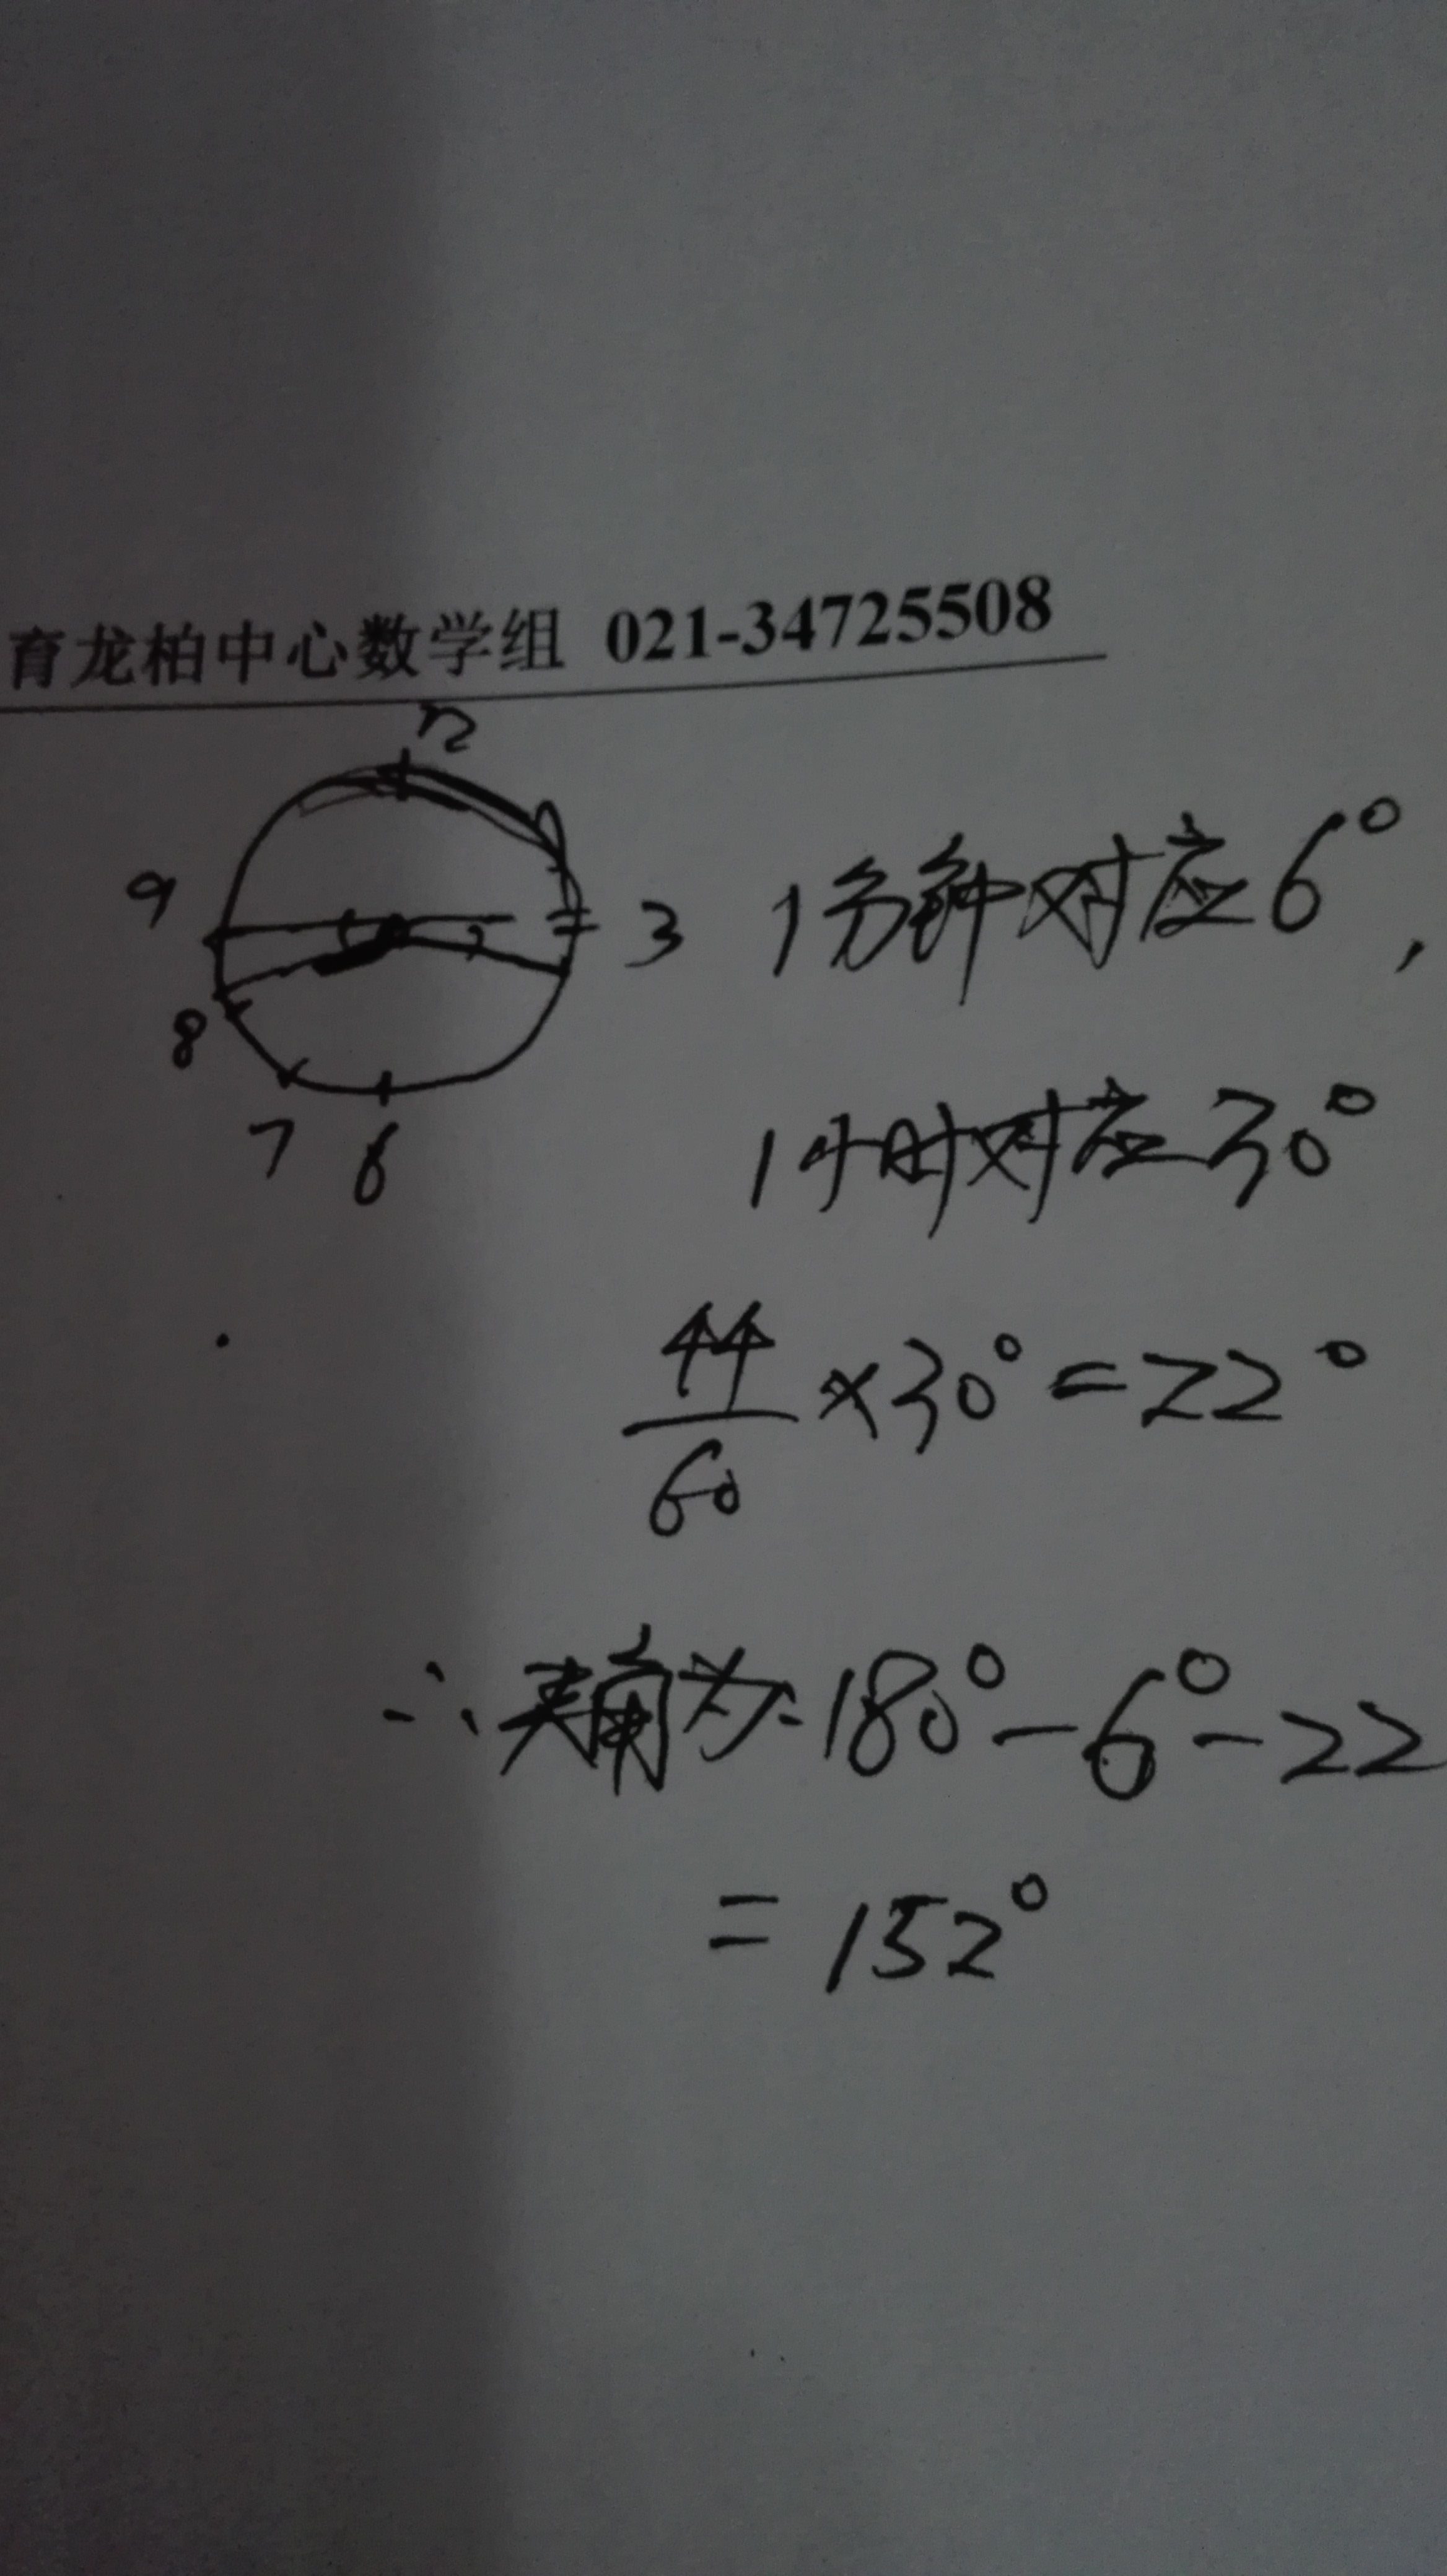 育龙柏中心数学组 021-34725508
12
9
3
8
7 6
1分钟对应6°,
1小时对应30°
44/60 ×30°=22°
∴夹角为180°-6°-22
=152°